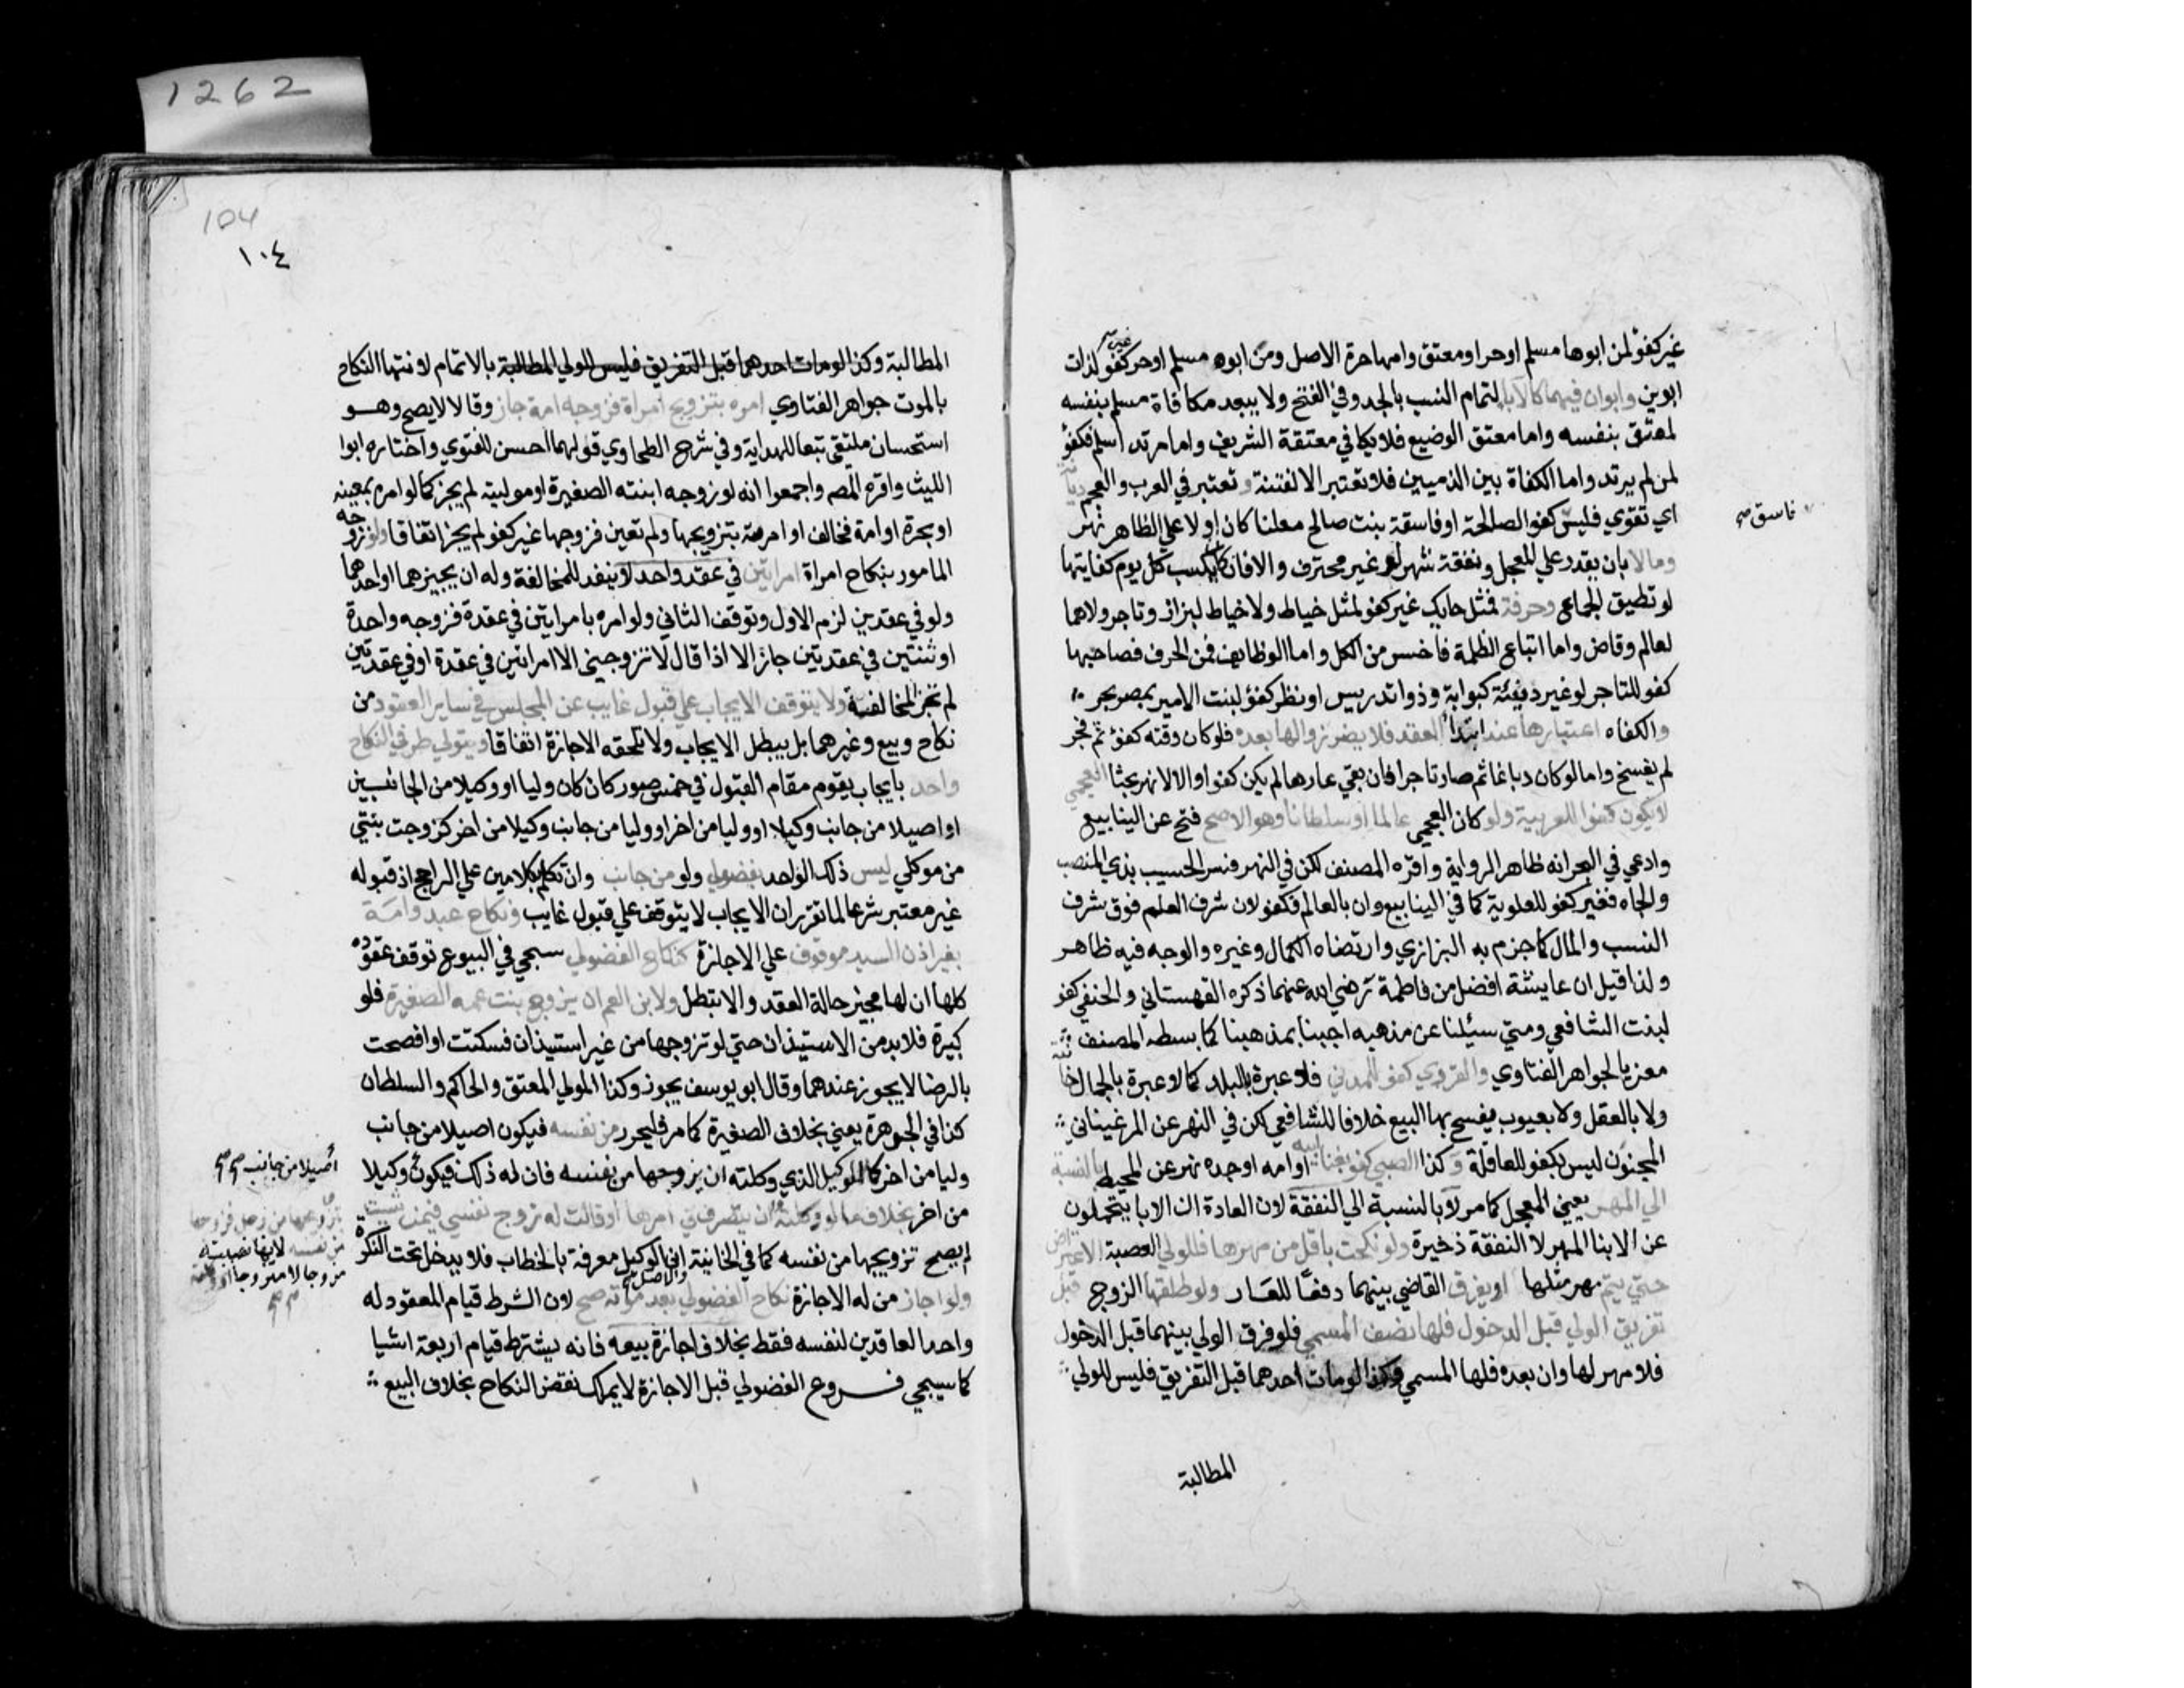 1262
غير كفؤ لمن ابوها مسلم اوحر او معتق وامها حرة الاصل ومن ابوه مسلم اوحر غير كفو لذات
ابوين وابوان فيهما كالآبا لتمام النسب بالجد وفي الفتح ولا يبعد مكافاة مسلم بنفسه
لمعتق بنفسه واما معتق الوضيع فلا يكافي معتقة الشريف واما مرتد اسلم فكفؤ
لمن لم يرتد واما الكفاة بين الذميين فلا تعتبر الا لفتنة و تعتبر في العرب والعجم ديانة
اي تقوي فليس كفو الصالحة او فاسقة بنت صالح معلنا كان او لا علي الظاهر نهر
فاسق صح
ومالا بان يقدر علي المعجل ونفقة شهر لو غير محترف والا فان كان يكسب كل يوم كفايتها
لو تطيق الجماع وحرفة فمثل حايك غير كفو لمثل خياط ولا خياط لبزاز وتاجر ولا هما
لعالم وقاض واما اتباع الظلمة فاخس من الكل واما الوظايف فمن الحرف فصاحبها
كفو للتاجر لو غير دنيئة كبوابة وذو اتدريس او نظر كفؤ لبنت الامير بمصر بحر
والكفاه اعتبارها عند ابتدا العقد فلا يضر زوالها بعده فلو كان وقته كفؤ ثم فجر
لم يفسخ واما لو كان دباغا ثم صار تاجرا فان بقي عارها لم يكن كفوا والا لا نهر بحثا العجمي
لا يكون كفوا للعربية ولو كان العجمي عالما او سلطانا وهو الاصح فتح عن الينابيع
وادعي في البحر انه ظاهر الرواية واقره المصنف لكن في النهر فسر الحسيب بذي المنصب
والجاه فغير كفو للعلوية كما في الينابيع وان بالعالم فكفو لان شرف العلم فوق شرف
النسب والمال كما جزم به البزازي وارتضاه الكمال وغيره والوجه فيه ظاهر
ولذا قيل ان عايشة افضل من فاطمة رضي الله عنهما ذكره القهستاني والحنفي كفو
لبنت الشافعي ومتي سيلنا عن مذهبه اجبنا بمذهبنا كما بسطه المصنف
معزيا لجواهر الفتاوي والقروي كفو للمدني فلا عبرة بالبلد كما لا عبرة بالجمال خانية
ولا بالعقل ولا بعيوب يفسح بها البيع خلافا للشافعي لكن في النهر عن المرغيناني
المجنون ليس بكفو للعاقلة وكذا الصبي كفو بغنا ابيه او امه او جده نهر عن المحيط بالنسبة
الي المهر يعني المعجل كما مر لا بالنسبة الي النفقة لان العادة ان الابا يتحملون
عن الابنا المهر لا النفقة ذخيرة ولو نكحت باقل من مهرها فللولي العصبة الاعتراض
حتي يتم مهر مثلها او يفرق القاضي بينهما دفعًا للعار ولو طلقها الزوج قبل
تفريق الولي قبل الدخول فلها نصف المسمي فلو فرق الولي بينهما قبل الدخول
فلا مهر لها وان بعده فلها المسمي وكذا لو مات احدهما قبل التفريق فليس للولي
المطالبة
104
١٠٤
المطالبة وكذا لو مات احدهما قبل التفريق فليس للولي المطالبة بالاتمام لانتها النكاح
بالموت جواهر الفتاوي امره بتزويج امراة فزوجه امة جاز وقالا لا يصح وهو
استحسان ملتقي تبعا للهداية وفي شرح الطحاوي قولهما احسن للفتوي واختاره ابوا
الليث واقره المص واجمعوا انه لو زوجه ابنته الصغيرة او موليته لم يجز كما لو امره بمعينه
او بحرة او امة فخالف او امرته بتزويجها ولم تعين فزوجها غير كفو لم يجز اتفاقا ولو زوجه
المامور بنكاح امراة امرايتين في عقد واحد لا ينفد للمخالفة وله ان يجيزهما او احدهما
ولو في عقدين لزم الاول وتوقف الثاني ولو امره بامرايتين في عقدة فزوجه واحدة
او ثنتين في عقدتين جاز الا اذا قال لا تزوجيني الا امرايتين في عقدة او في عقدتين
لم تجز المخالفة ولا يتوقف الايجاب علي قبول غايب عن المجلس في ساير العقود من
نكاح وبيع وغيرهما بل يبطل الايجاب ولا تلحقه الاجازة اتفاقا ويتولي طرفي النكاح
واحد بايجاب يقوم مقام القبول في خمس صور كان كان وليا او وكيلا من الجانبين
او اصيلا من جانب وكيلا او وليا من اخر او وليا من جانب وكيلا من اخر كزوجت بنتي
من موكلي ليس ذلك الواحد بفضولي ولو من جانب وان تكلم بكلامين علي الراجح اذ قبوله
غير معتبر شرعا لما تقرر ان الايجاب لا يتوقف علي قبول غايب ونكاح عبد وامة
بغير اذن السيد موقوف علي الاجازة كنكاح الفضولي سيجي في البيوع توقف عقوده
كلها ان لها مجيز حالة العقد والا تبطل ولابن العم ان يزوج بنت عمه الصغيرة فلو
كبيرة فلا بد من الاستيذان حتي لو تزوجها من غير استيذان فسكتت او افصحت
بالرضا لا يجوز عندهما وقال ابو يوسف يجوز وكذا المولي المعتق والحاكم والسلطان
كذا في الجوهرة يعني بخلاف الصغيرة كما مر فليحرر من نفسه فيكون اصيلا من جانب
وليا من اخر كما للوكيل الذي وكلته ان يزوجها من نفسه فان له ذلك فيكون وكيلا
اصيلا من جانب صح
من اخر بخلاف ما لو وكلته ان يتصرف في امرها او قالت له زوج نفسي فيمن شيت
لم يصح تزويجها من نفسه كما في الخانية والاصل ان الوكيل معرفة بالخطاب فلا يدخل تحت النكرة
بتزويجها من رجل فزوجها
من نفسه لانها نصبته
مزوجا لا متزوجا او وكلته
ولو اجاز من له الاجازة نكاح الفضولي بعد موته صح لان الشرط قيام المعقود له
واحد العاقدين لنفسه فقط بخلاف اجازة بيعه فانه يشترط قيام اربعة اشيا
كما سيجي فروع الفضولي قبل الاجازة لا يملك نقض النكاح بخلاف البيع